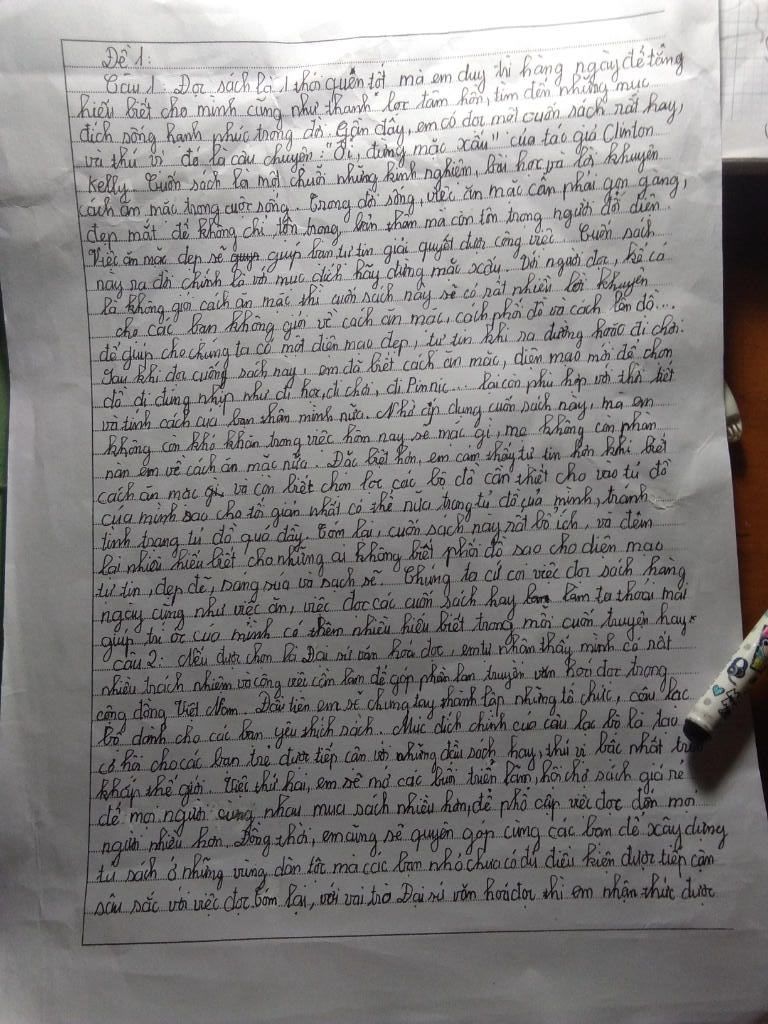 Đề 1:
Câu 1: Đọc sách là 1 thói quen tốt mà em duy trì hàng ngày để tăng
hiểu biết cho mình cũng như thanh lọc tâm hồn, tìm đến những mục
đích sống hạnh phúc trong đời. Gần đây, em có đọc một cuốn sách rất hay,
và thú vị đó là câu chuyện: "Ơi, đừng mặc xấu" của tác giả Clinton
Kelly. Cuốn sách là một chuỗi những kinh nghiệm, bài học và lời khuyên
cách ăn mặc trong cuộc sống. Trong đời sống, việc ăn mặc cần phải gọn gàng,
đẹp mắt để không chỉ tôn trọng bản thân mà còn tôn trọng người đối diện.
Việc ăn mặc đẹp sẽ giúp bạn tự tin giải quyết được công việc. Cuốn sách
này ra đời chính là với mục đích hãy đừng mặc xấu. Với người đọc, kể cả
là không giỏi cách ăn mặc thì cuốn sách này sẽ có rất nhiều lời khuyên
cho các bạn không giỏi về cách ăn mặc, cách phối đồ và cách lên đồ...
để giúp cho chúng ta có một diện mạo đẹp, tự tin khi ra đường hoặc đi chơi.
Sau khi đọc cuống sách này, em đã biết cách ăn mặc, diện mạo mới để chọn
đồ đi đúng nhịp như đi học, đi chơi, đi Pinnic... lại còn phù hợp với thời tiết
và tính cách của bản thân mình nữa. Nhờ áp dụng cuốn sách này, mà em
không còn khó khăn trong việc hôm nay sẽ mặc gì, mẹ không còn phàn
nàn em về cách ăn mặc nữa. Đặc biệt hơn, em cảm thấy tự tin hơn khi biết
cách ăn mặc gì và còn biết chọn lọc các bộ đồ cần thiết cho vào tủ đồ
của mình sao cho tối giản nhất có thể nữa trong tủ đồ của mình, tránh
tình trạng tủ đồ quá đầy. Tóm lại, cuốn sách này rất bổ ích, và đêm
lại nhiều hiểu biết cho những ai không biết phối đồ sao cho diện mạo
tự tin, đẹp đẽ, sáng sủa và sạch sẽ. Chúng ta cứ coi việc đọc sách hàng
ngày cũng như việc ăn, việc đọc các cuốn sách hay làm ta thoải mái
giúp trí óc của mình có thêm nhiều hiểu biết trong mỗi cuốn truyện hay.
Câu 2: Nếu được chọn là Đại sứ văn hóa đọc, em tự nhận thấy mình có rất
nhiều trách nhiệm và công việc cần làm để góp phần lan truyền văn hoá đọc trong
cộng đồng Việt Nam. Đầu tiên em sẽ chung tay thành lập những tổ chức, câu lạc
bộ dành cho các bạn yêu thích sách. Mục đích chính của câu lạc bộ là tạo
cơ hội cho các bạn trẻ được tiếp cận với những đầu sách hay, thú vị bậc nhất trên
khắp thế giới. Việc thứ hai, em sẽ mở các buổi triển lãm, hội chợ sách giá rẻ
để mọi người cùng nhau mua sách nhiều hơn, để phổ cập việc đọc đến mọi
người nhiều hơn. Đồng thời, em cũng sẽ quyên góp cùng các bạn để xây dựng
tủ sách ở những vùng dân tộc mà các bạn nhỏ chưa có đủ điều kiện được tiếp cận
sâu sắc với việc đọc. Tóm lại, với vai trò Đại sứ văn hoá đọc thì em nhận thức được